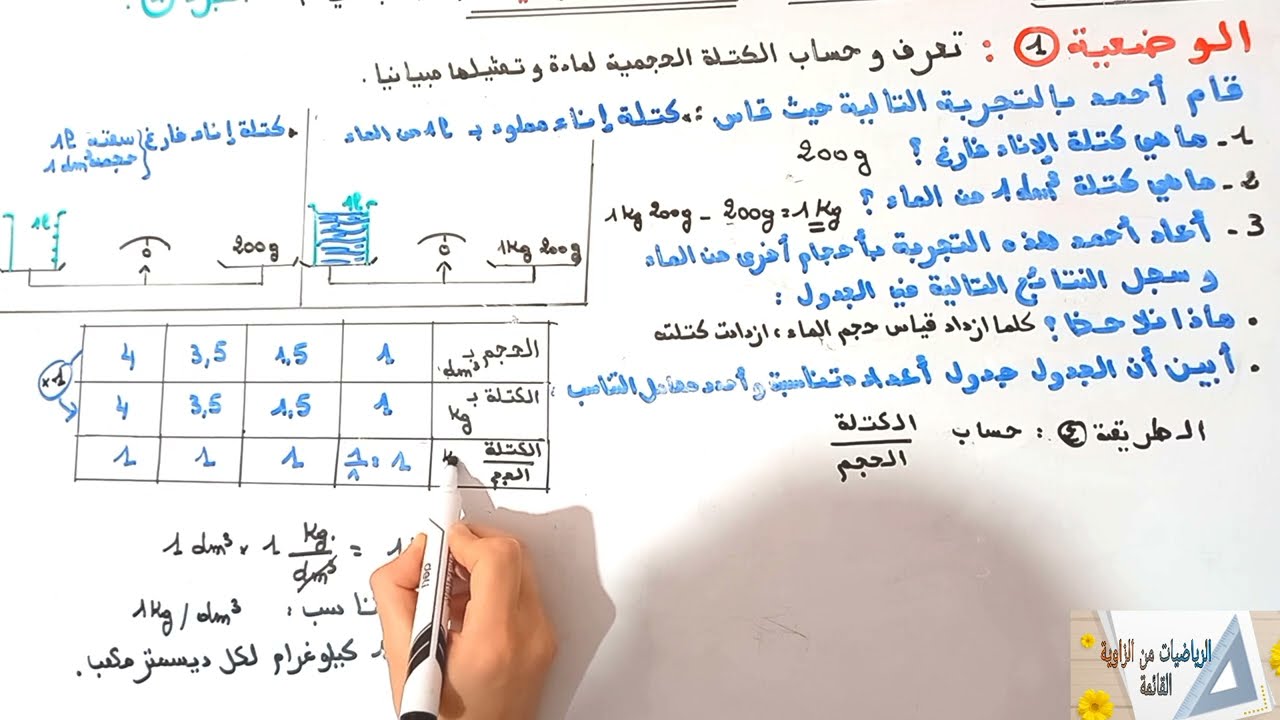 الوضعية 1 : تعرف و حساب الكتلة الحجمية لمادة و تمثيلها مبيانيا .
قام أحمد بالتجربة التالية حيث قاس :
• كتلة إناء مملوء بـ 1l من الماء
• كتلة إناء فارغ { سعته 1l
حجمه 1 dm³
1 - ما هي كتلة الإناء فارغ ؟ 200g
2 - ما هي كتلة 1 dm³ من الماء ؟ 1Kg 200g - 200g = 1Kg
3 - أعاد أحمد هذه التجربة بأحجام أخرى من الماء
و سجل النتائج التالية في الجدول :
• ماذا نلاحظ ؟ كلما ازداد قياس حجم الماء ، ازدادت كتلته
• أبين أن الجدول جدول أعداد متناسبة و أحدد معامل التناسب :
الطريقة 2 : حساب الكتلة / الحجم
1l
200g
1l
1Kg 200g
الحجم بـ dm³ 1 1,5 3,5 4
الكتلة بـ kg 1 1,5 3,5 4
الكتلة / الحجم 1/1 = 1 1 1 1
× 1
1 dm³ × 1 Kg / dm³ = 1
1Kg / dm³
كيلوغرام لكل ديسمتر مكعب .
الرياضيات من الزاوية
القائمة